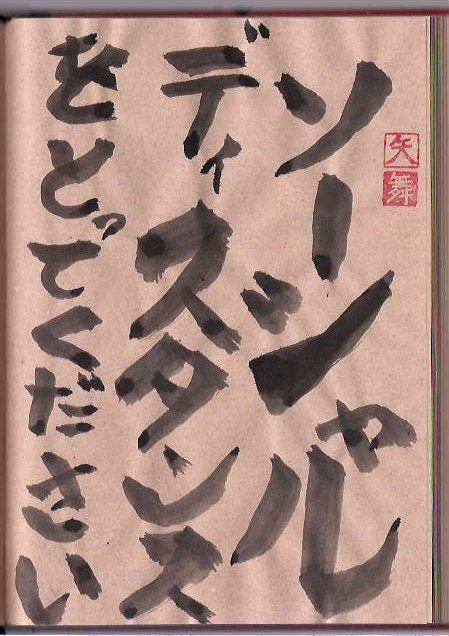 ソーシャル
ディスタンス
をとってください
矢
舞